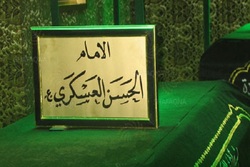 الامام
الحسن العسكري ع